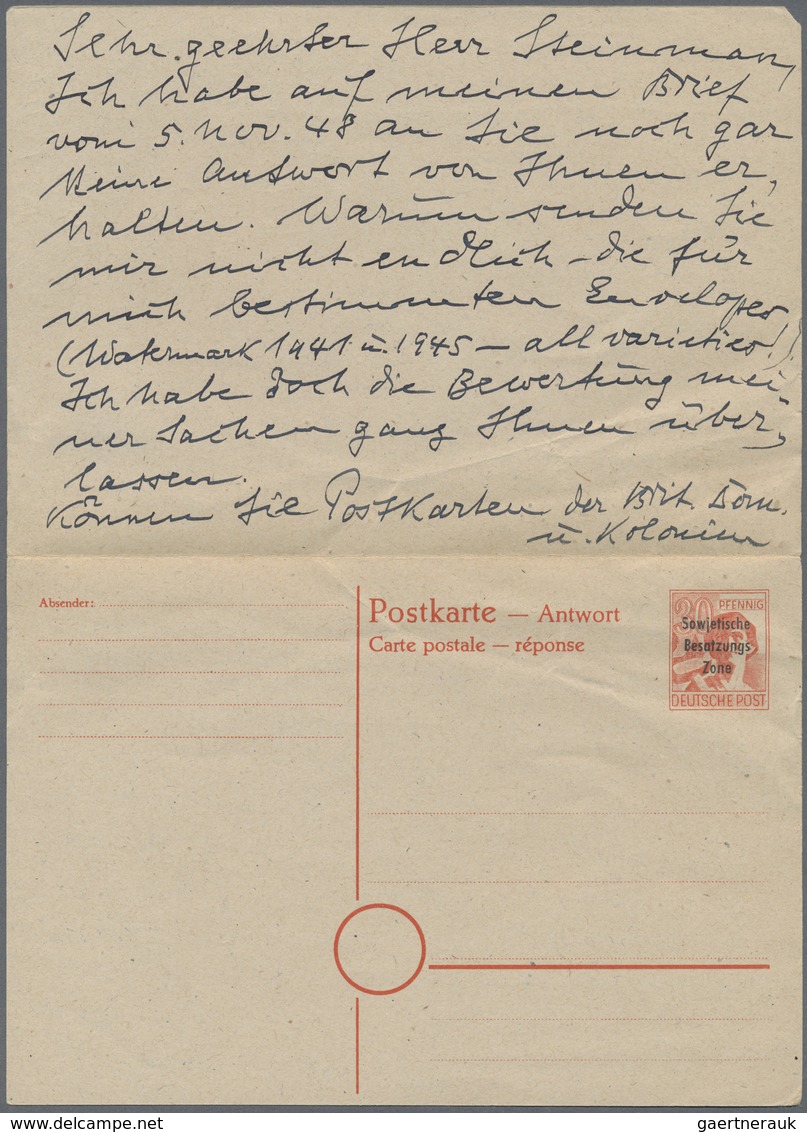 Sehr geehrter Herr Steinman,
Ich habe auf meinen Brief
vom 5. Nov. 48 an Sie noch gar
keine Antwort von Ihnen er,
halten. Warum senden Sie
mir nicht endlich – die für
mich bestimmten Envelopes
(Watermark 1941 u. 1945 – all varieties!)!
Ich habe doch die Bewertung mei,
ner Sachen ganz Ihnen über,
lassen.
Können Sie Postkarten der Brit. Dom.
u. Kolonien
Absender:
Postkarte — Antwort
Carte postale — réponse
30 PFENNIG
Sowjetische
Besatzungs
Zone
DEUTSCHE POST
gaertnerauk